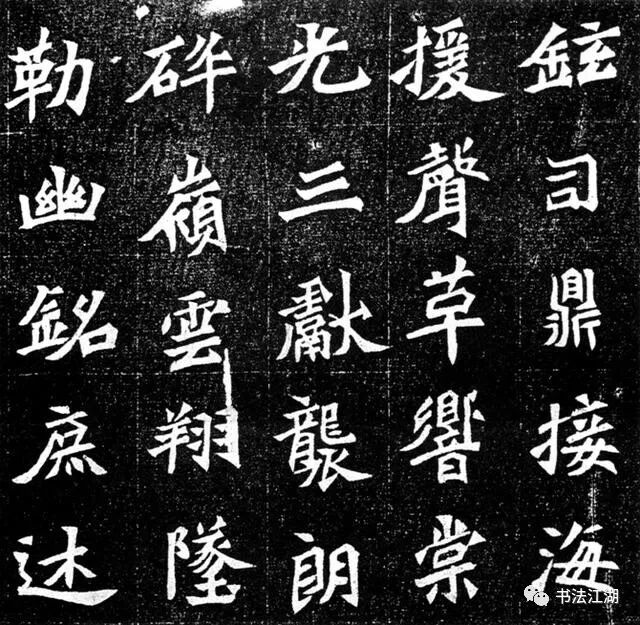 鉉司鼎接海
援聲草響棠
光三獻襲朗
砕嶺雲翔墜
勒幽銘庶述
书法江湖